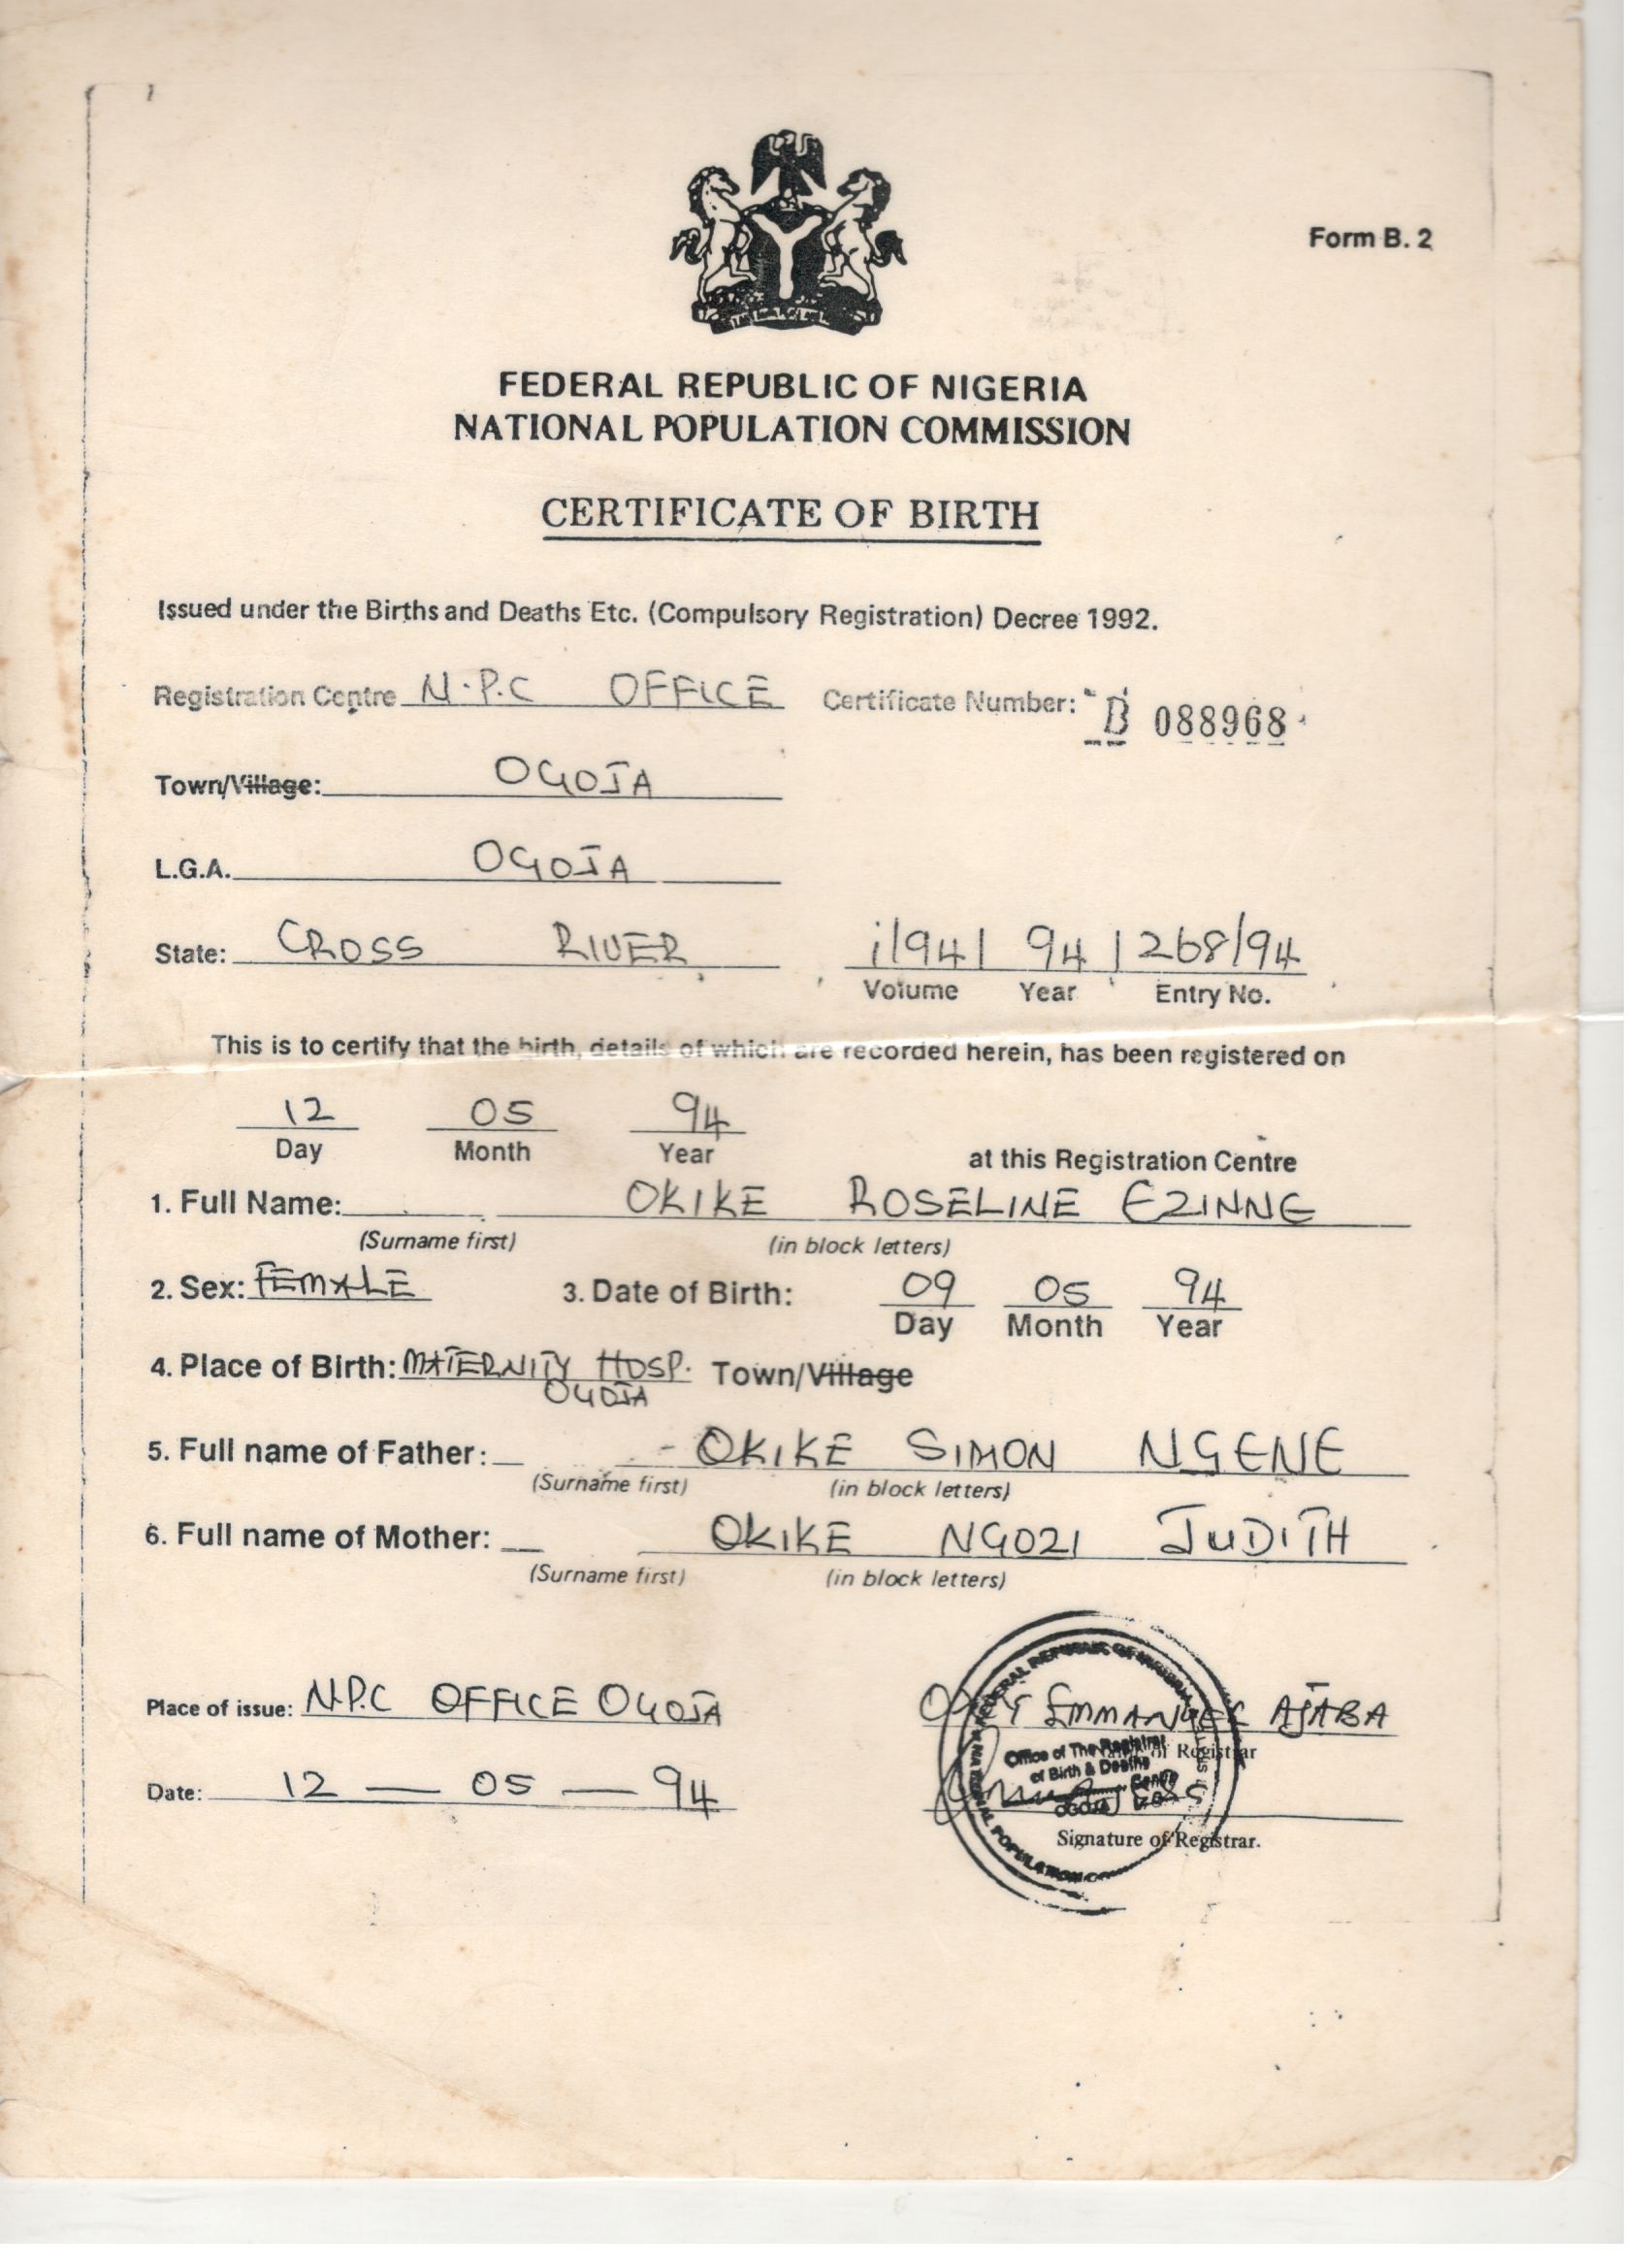 Form B. 2
FEDERAL REPUBLIC OF NIGERIA
NATIONAL POPULATION COMMISSION
CERTIFICATE OF BIRTH
Issued under the Births and Deaths Etc. (Compulsory Registration) Decree 1992.
Registration Centre N.P.C OFFICE Certificate Number: B 088968
Town/Village: OGOJA
L.G.A. OGOJA
State: CROSS RIVER i/94/ 94 / 268/94
Volume Year Entry No.
This is to certify that the birth, details of which are recorded herein, has been registered on
12 05 94
Day Month Year at this Registration Centre
1. Full Name: OKIKE ROSELINE EZINNE
(Surname first) (in block letters)
2. Sex: FEMALE 3. Date of Birth: 09 05 94
Day Month Year
4. Place of Birth: MATERNITY HOSP. Town/Village
OGOJA
5. Full name of Father: OKIKE SIMON NGENE
(Surname first) (in block letters)
6. Full name of Mother: OKIKE NGOZI JUDITH
(Surname first) (in block letters)
Place of issue: N.P.C OFFICE OGOJA EMMANUEL AJABA
of Registrar
Date: 12 — 05 — 94
Signature of Registrar.
FEDERAL REPUBLIC OF NIGERIA
NATIONAL POPULATION
Office of The Registrar
of Birth & Deaths
Centre
OGOJA